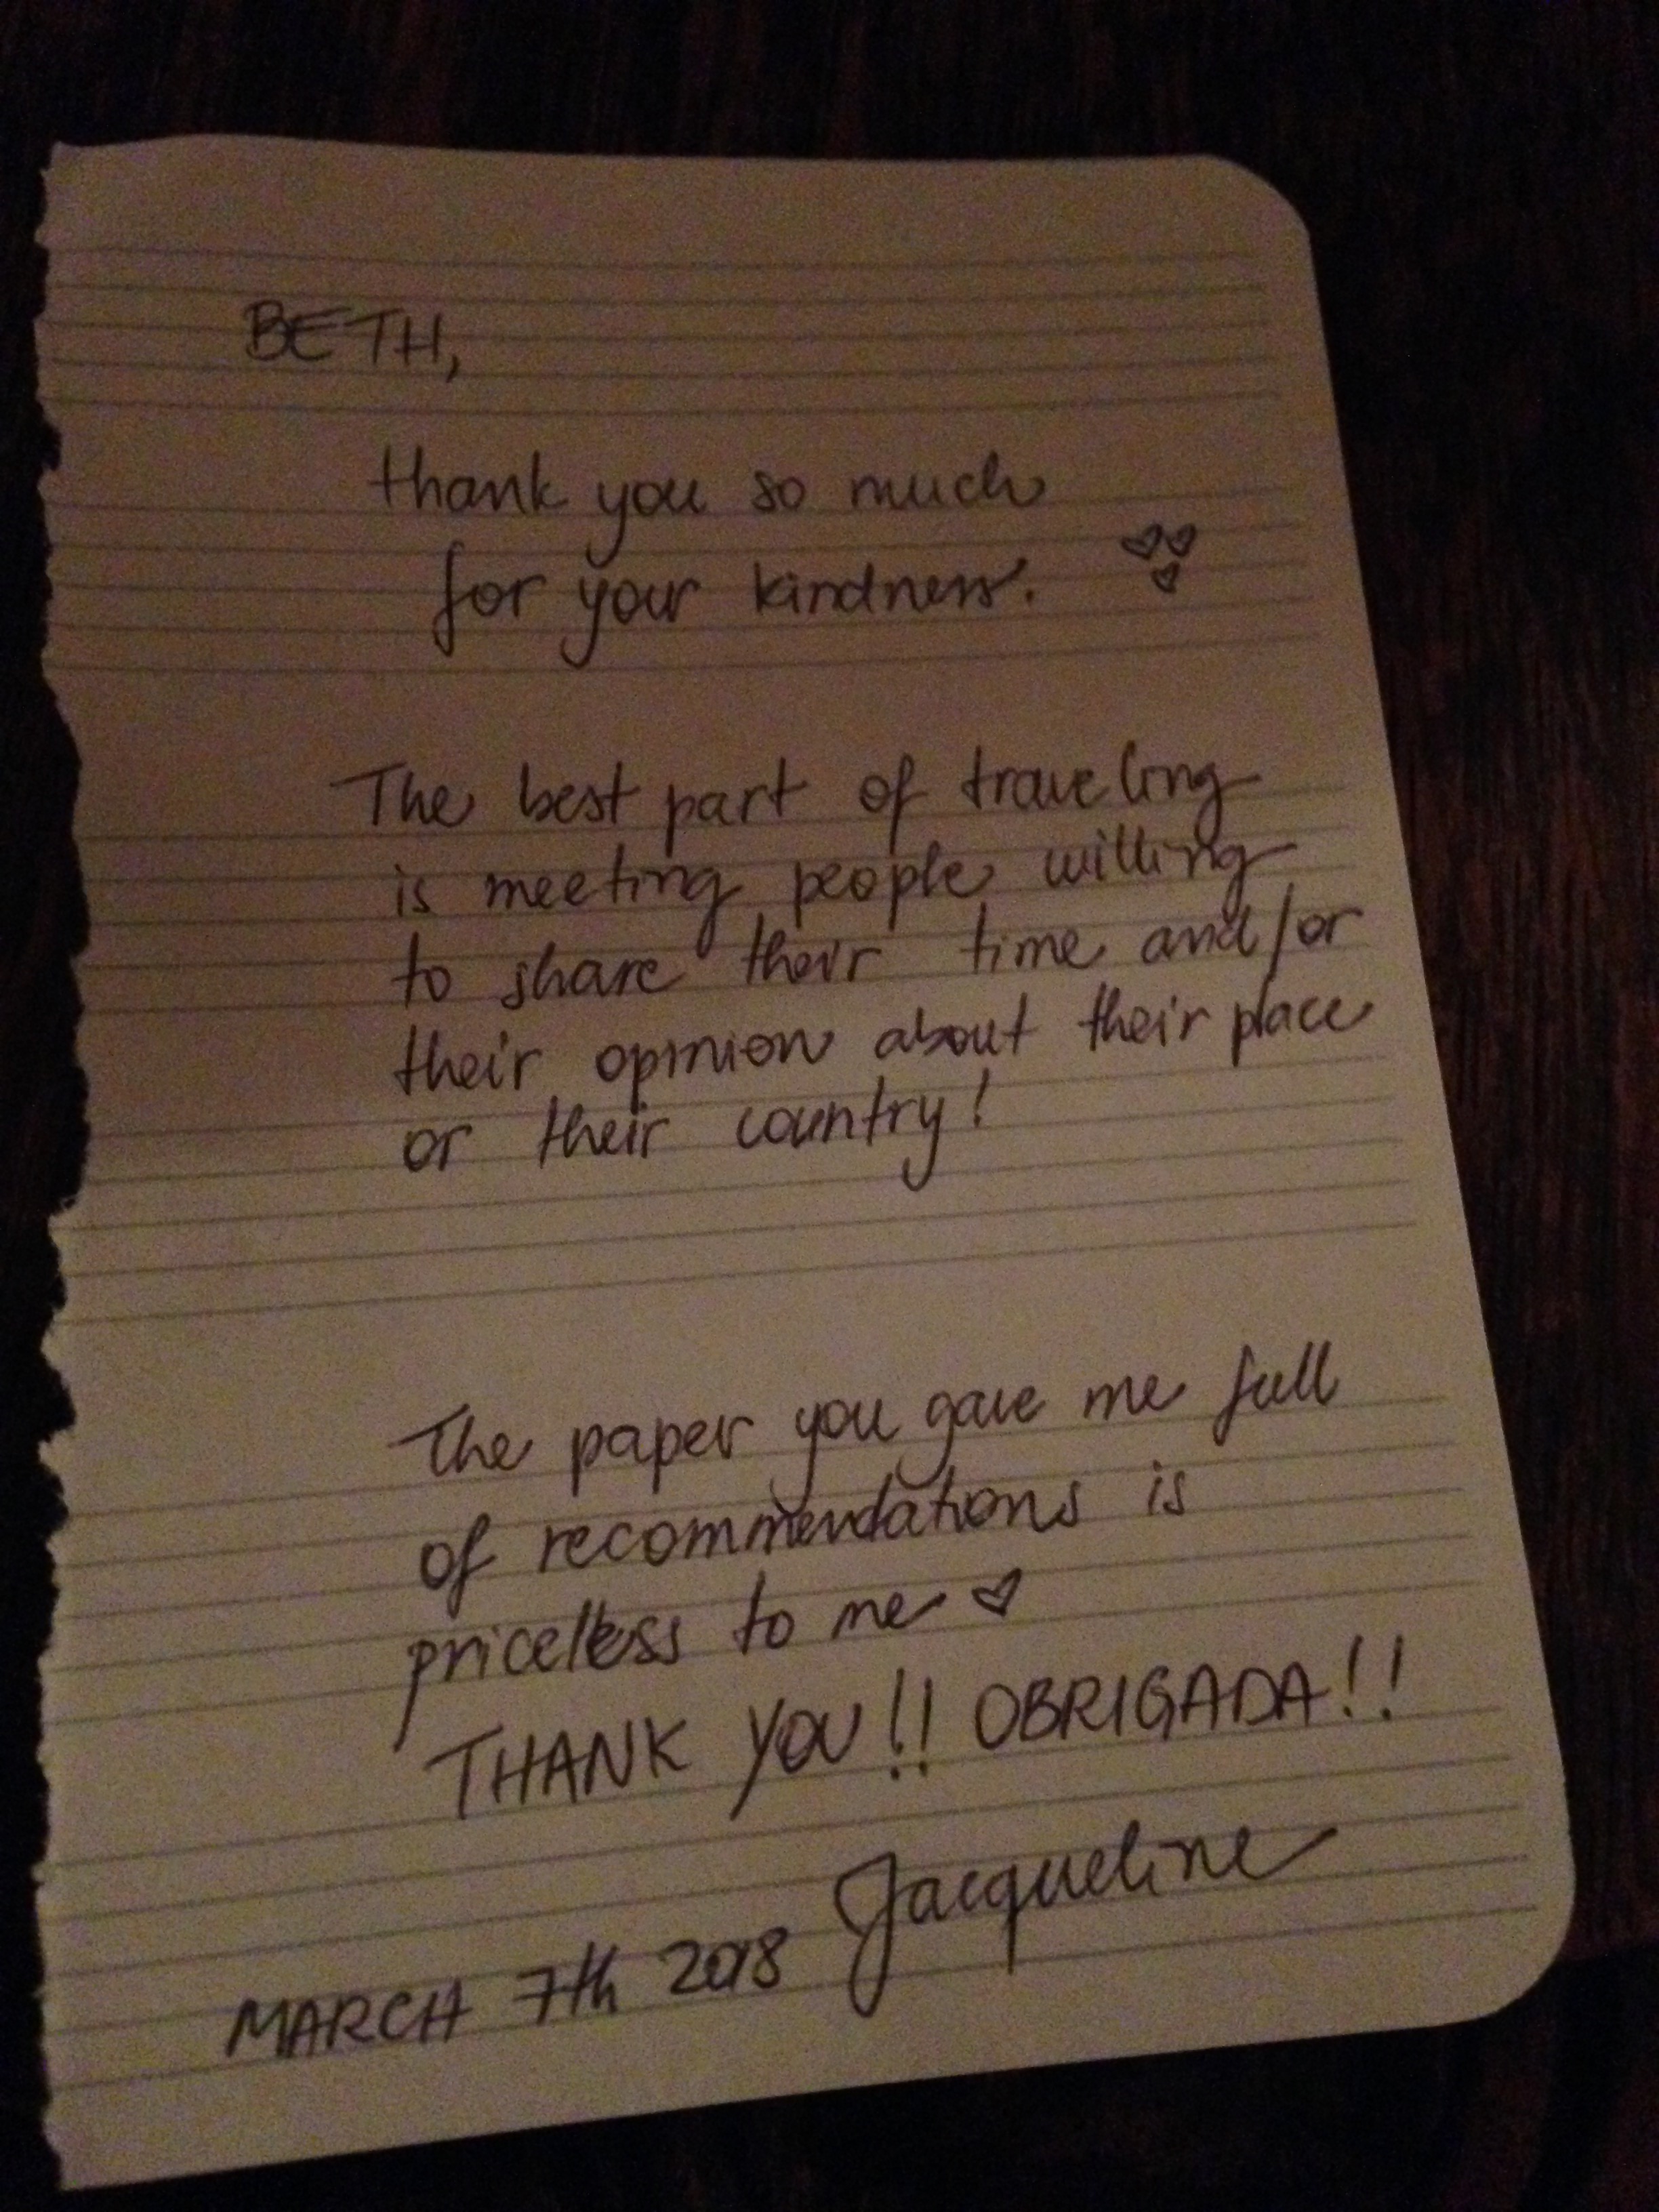 BETH,
thank you so much
for your kindness.
The best part of traveling
is meeting people willing
to share their time and/or
their opinion about their place
or their country!
The paper you gave me full
of recommendations is
priceless to me
THANK YOU!! OBRIGADA!!
Jacqueline
MARCH 7th 2018